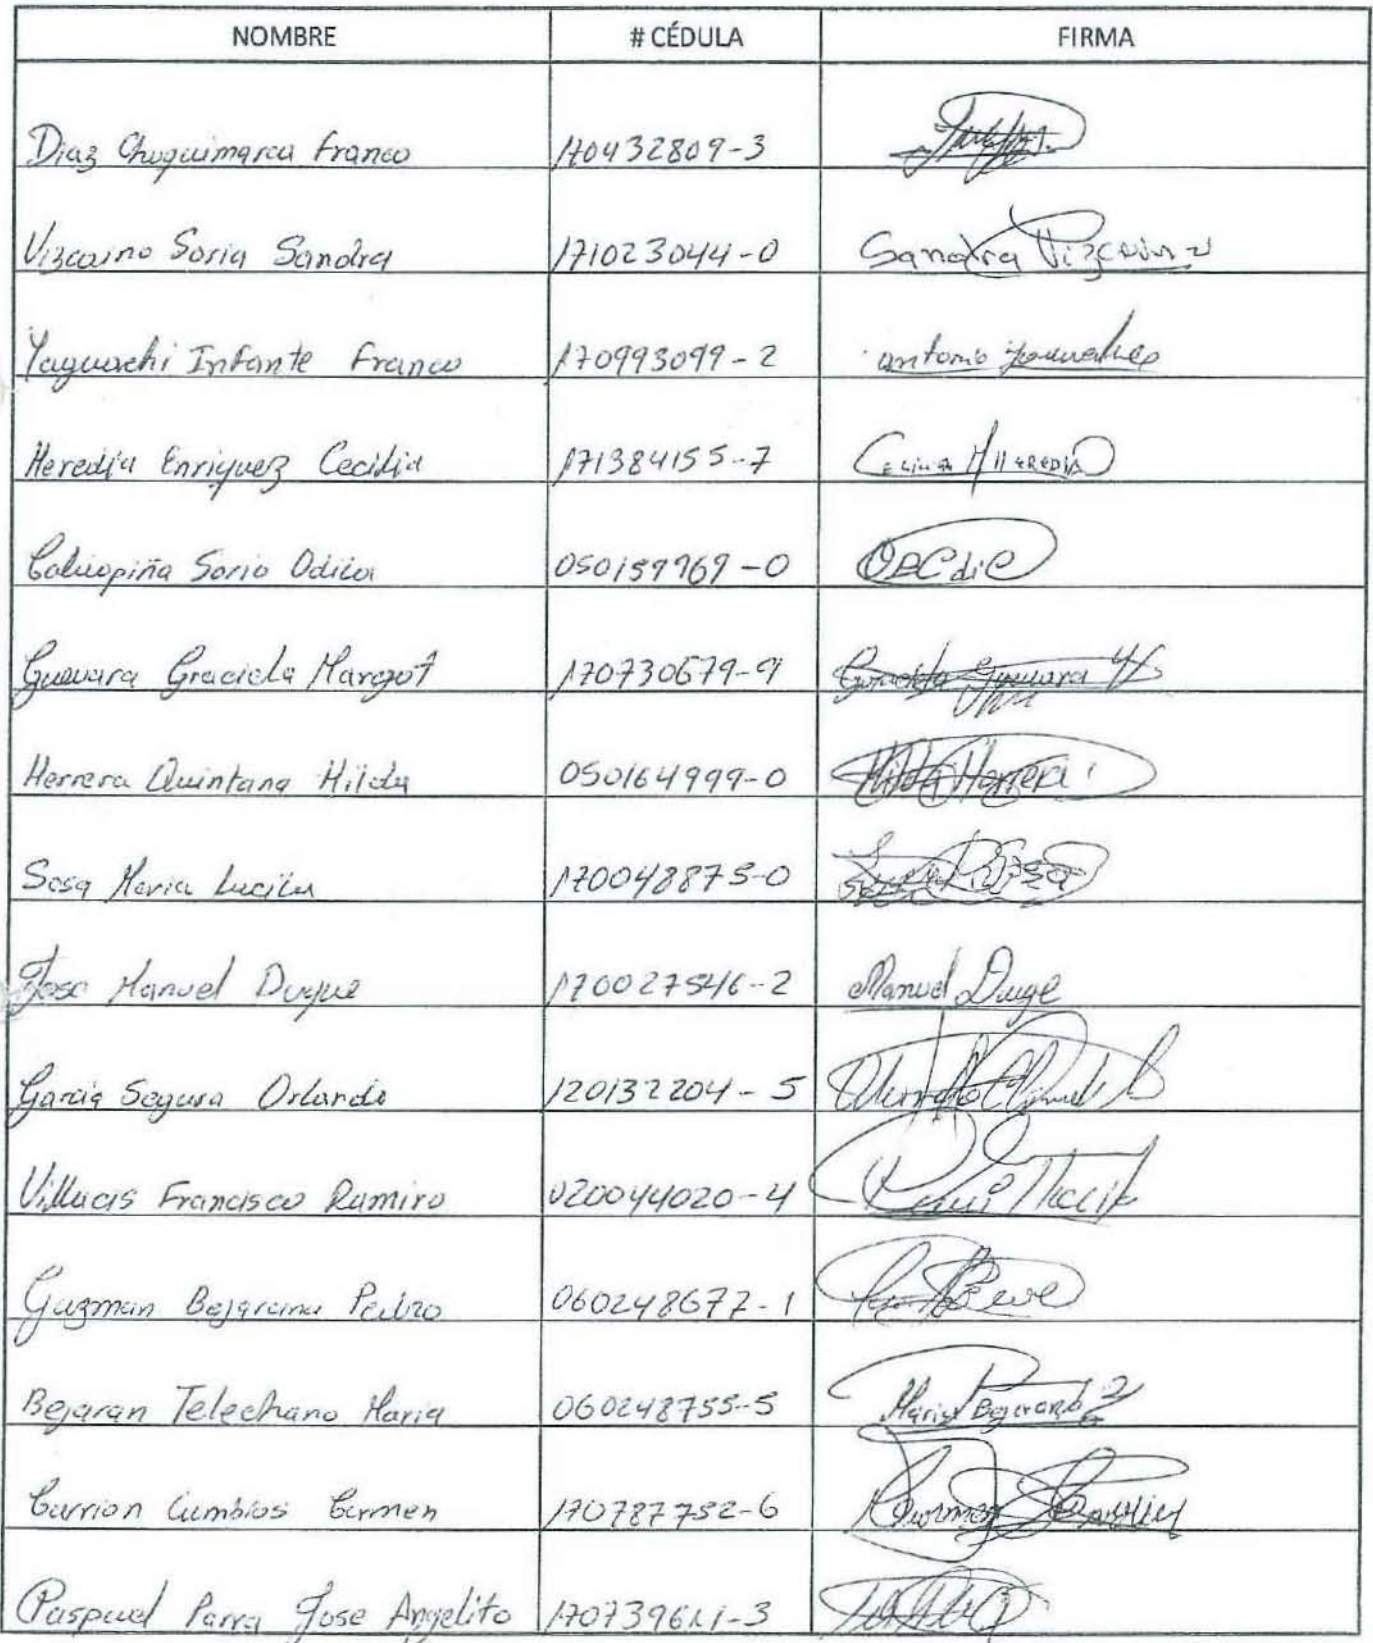 NOMBRE # CÉDULA FIRMA
Diaz Chuquimarca Franco 170432809-3
Vizcaino Soria Sandra 171023044-0 Sandra Vizcaino
Yaguachi Infante Franco 170993099-2 antonio
Heredia Enriquez Cecilia 171384155-7 Cecilia Heredia
Calvopiña Sorio Odila 050159769-0
Guevara Graciela Margot 170730679-9 Graciela Guevara
Herrera Quintana Hilda 050164999-0 Hilda Herrera
Sosa Maria Lucila 170048875-0
Jose Manuel Duque 170027546-2 Manuel Duqe
Garcia Segura Orlando 120132204-5
Villacis Francisco Ramiro 020044020-4
Guzman Bejarano Pedro 060248677-1
Bejaran Telechano Maria 060248755-5 Maria Bejarano
Carrion Cumbios Carmen 170787752-6 Carmen
Paspuel Parra Jose Angelito